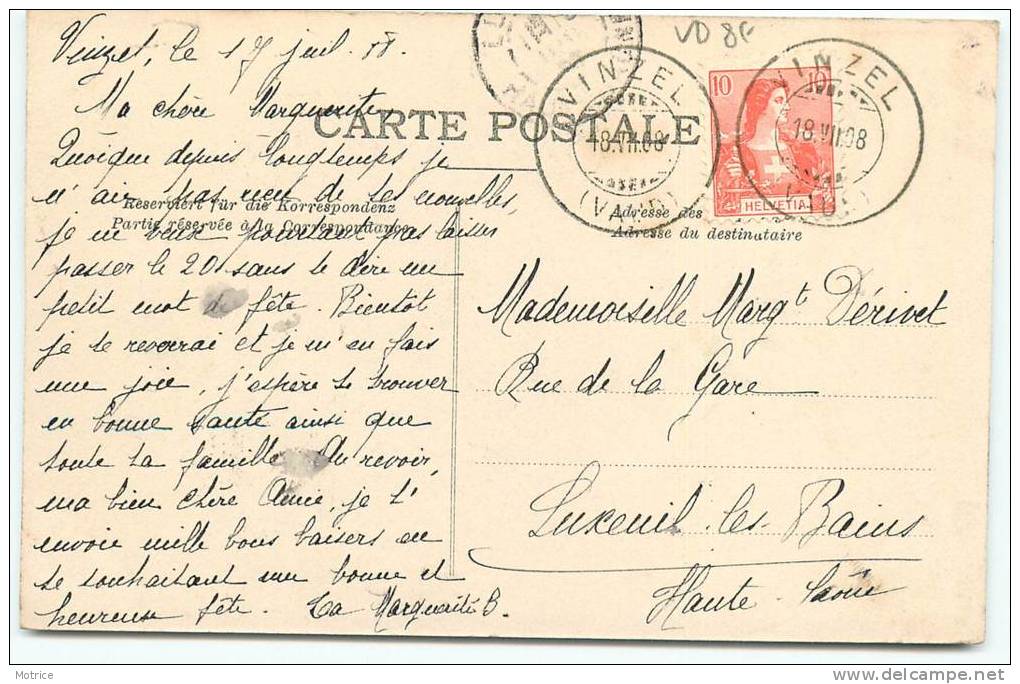 Vinzel, le 17 juil. 08.
VD 86
Ma chère Marguerite,
CARTE POSTALE
Quoique depuis longtemps je
n'aie pas rien de tes nouvelles,
je ne veux pourtant pas laisser
passer le 20 sans te dire un
petit mot de fête. Bientôt
je te reverrai et je m'en fais
une joie, j'espère te trouver
en bonne santé ainsi que
toute ta famille. Au revoir,
ma bien chère Amie, je t'
envoie mille bons baisers en
te souhaitant une bonne et
heureuse fête. Ta Marguerite B.
Reserviert für die Korrespondenz
Partie réservée à la Correspondance
VINZEL
18.VII.08
(VAUD)
10 10
HELVETIA
VINZEL
18.VII.08
(VAUD)
Adresse des
Adresse du destinataire
Mademoiselle Margt Dérivet
Rue de la Gare
Luxeuil-les-Bains
Haute-Saône
Motrice
delcampe.net